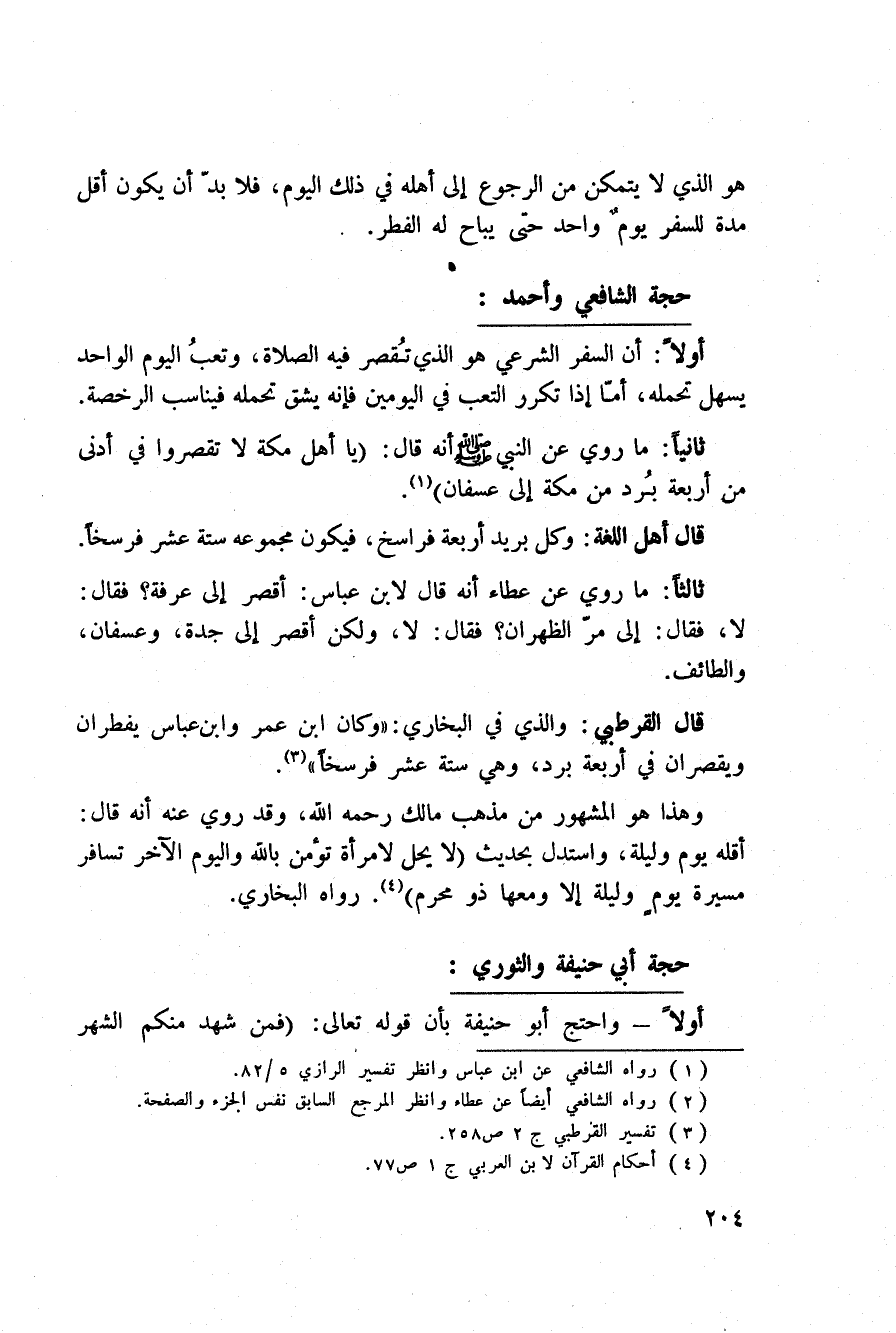 هو الذي لا يتمكن من الرجوع إلى أهله في ذلك اليوم، فلا بدّ أن يكون أقل
مدة للسفر يومٌ واحد حتّى يباح له الفطر.
حجة الشافعي وأحمد :
أولاً: أن السفر الشرعي هو الذي تُقصر فيه الصلاة، وتعبُ اليوم الواحد
يسهل تحمله، أمّا إذا تكرر التعب في اليومين فإنه يشق تحمله فيناسب الرخصة.
ثانياً: ما روي عن النبي ﷺ أنه قال: (يا أهل مكة لا تقصروا في أدنى
من أربعة بُرد من مكة إلى عسفان)(١).
قال أهل اللغة: وكل بريد أربعة فراسخ، فيكون مجموعه ستة عشر فرسخاً.
ثالثاً: ما روي عن عطاء أنه قال لابن عباس: أقصر إلى عرفة؟ فقال:
لا، فقال: إلى مرّ الظهران؟ فقال: لا، ولكن أقصر إلى جدة، وعسفان،
والطائف.
قال القرطبي: والذي في البخاري: «وكان ابن عمر وابن عباس يفطران
ويقصران في أربعة برد، وهي ستة عشر فرسخاً»(٣).
وهذا هو المشهور من مذهب مالك رحمه الله، وقد روي عنه أنه قال:
أقله يوم وليلة، واستدل بحديث (لا يحل لامرأة تؤمن بالله واليوم الآخر تسافر
مسيرة يومٍ وليلة إلا ومعها ذو محرم)(٤). رواه البخاري.
حجة أبي حنيفة والثوري :
أولاً – واحتج أبو حنيفة بأن قوله تعالى: (فمن شهد منكم الشهر
(١) رواه الشافعي عن ابن عباس وانظر تفسير الرازي ٨٢/٥.
(٢) رواه الشافعي أيضاً عن عطاء وانظر المرجع السابق نفس الجزء والصفحة.
(٣) تفسير القرطبي ج ٢ ص٢٥٨.
(٤) أحكام القرآن لابن العربي ج ١ ص٧٧.
٢٠٤